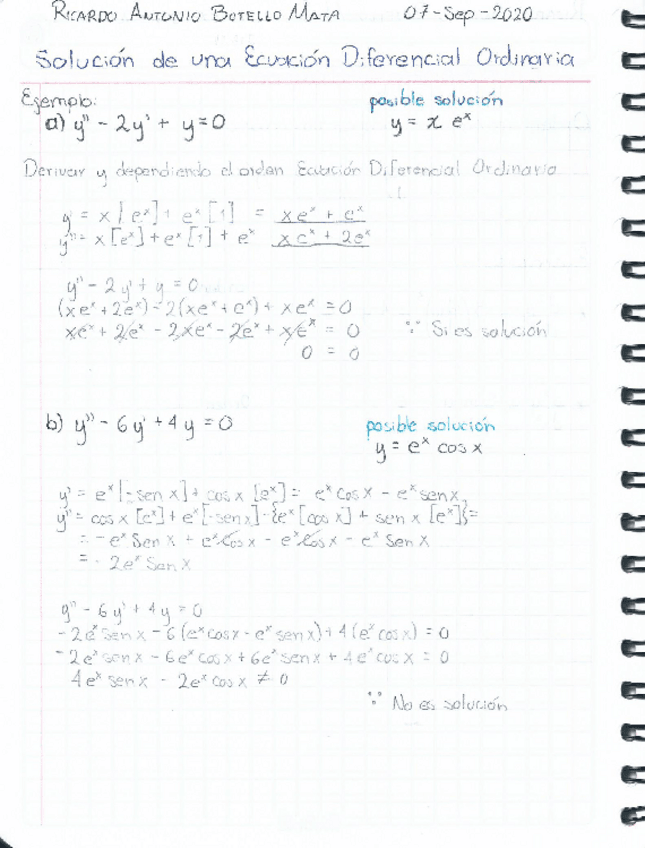 RICARDO ANTONIO BOTELLO MATA 07-Sep-2020
Solución de una Ecuación Diferencial Ordinaria
Ejemplo: posible solución
a) y'' - 2y' + y = 0 y = x e^x
Derivar y dependiendo el orden Ecuación Diferencial Ordinaria
y' = x[e^x] + e^x[1] = xe^x + e^x
y'' = x[e^x] + e^x[1] + e^x xe^x + 2e^x
y'' - 2y' + y = 0
(xe^x + 2e^x) - 2(xe^x + e^x) + xe^x = 0
xe^x + 2e^x - 2xe^x - 2e^x + xe^x = 0 ∵ Si es solución
0 = 0
b) y'' - 6y' + 4y = 0 posible solución
y = e^x cos x
y' = e^x[-sen x] + cos x [e^x] = e^x cos x - e^x sen x
y'' = cos x [e^x] + e^x[-sen x] - {e^x[cos x] + sen x [e^x]} =
= -e^x Sen x + e^x Cos x - e^x Cos x - e^x Sen x
= - 2e^x Sen x
y'' - 6y' + 4y = 0
-2e^x sen x - 6(e^x cos x - e^x sen x) + 4(e^x cos x) = 0
-2e^x sen x - 6e^x cos x + 6e^x sen x + 4e^x cos x = 0
4e^x sen x - 2e^x cos x ≠ 0
∵ No es solución